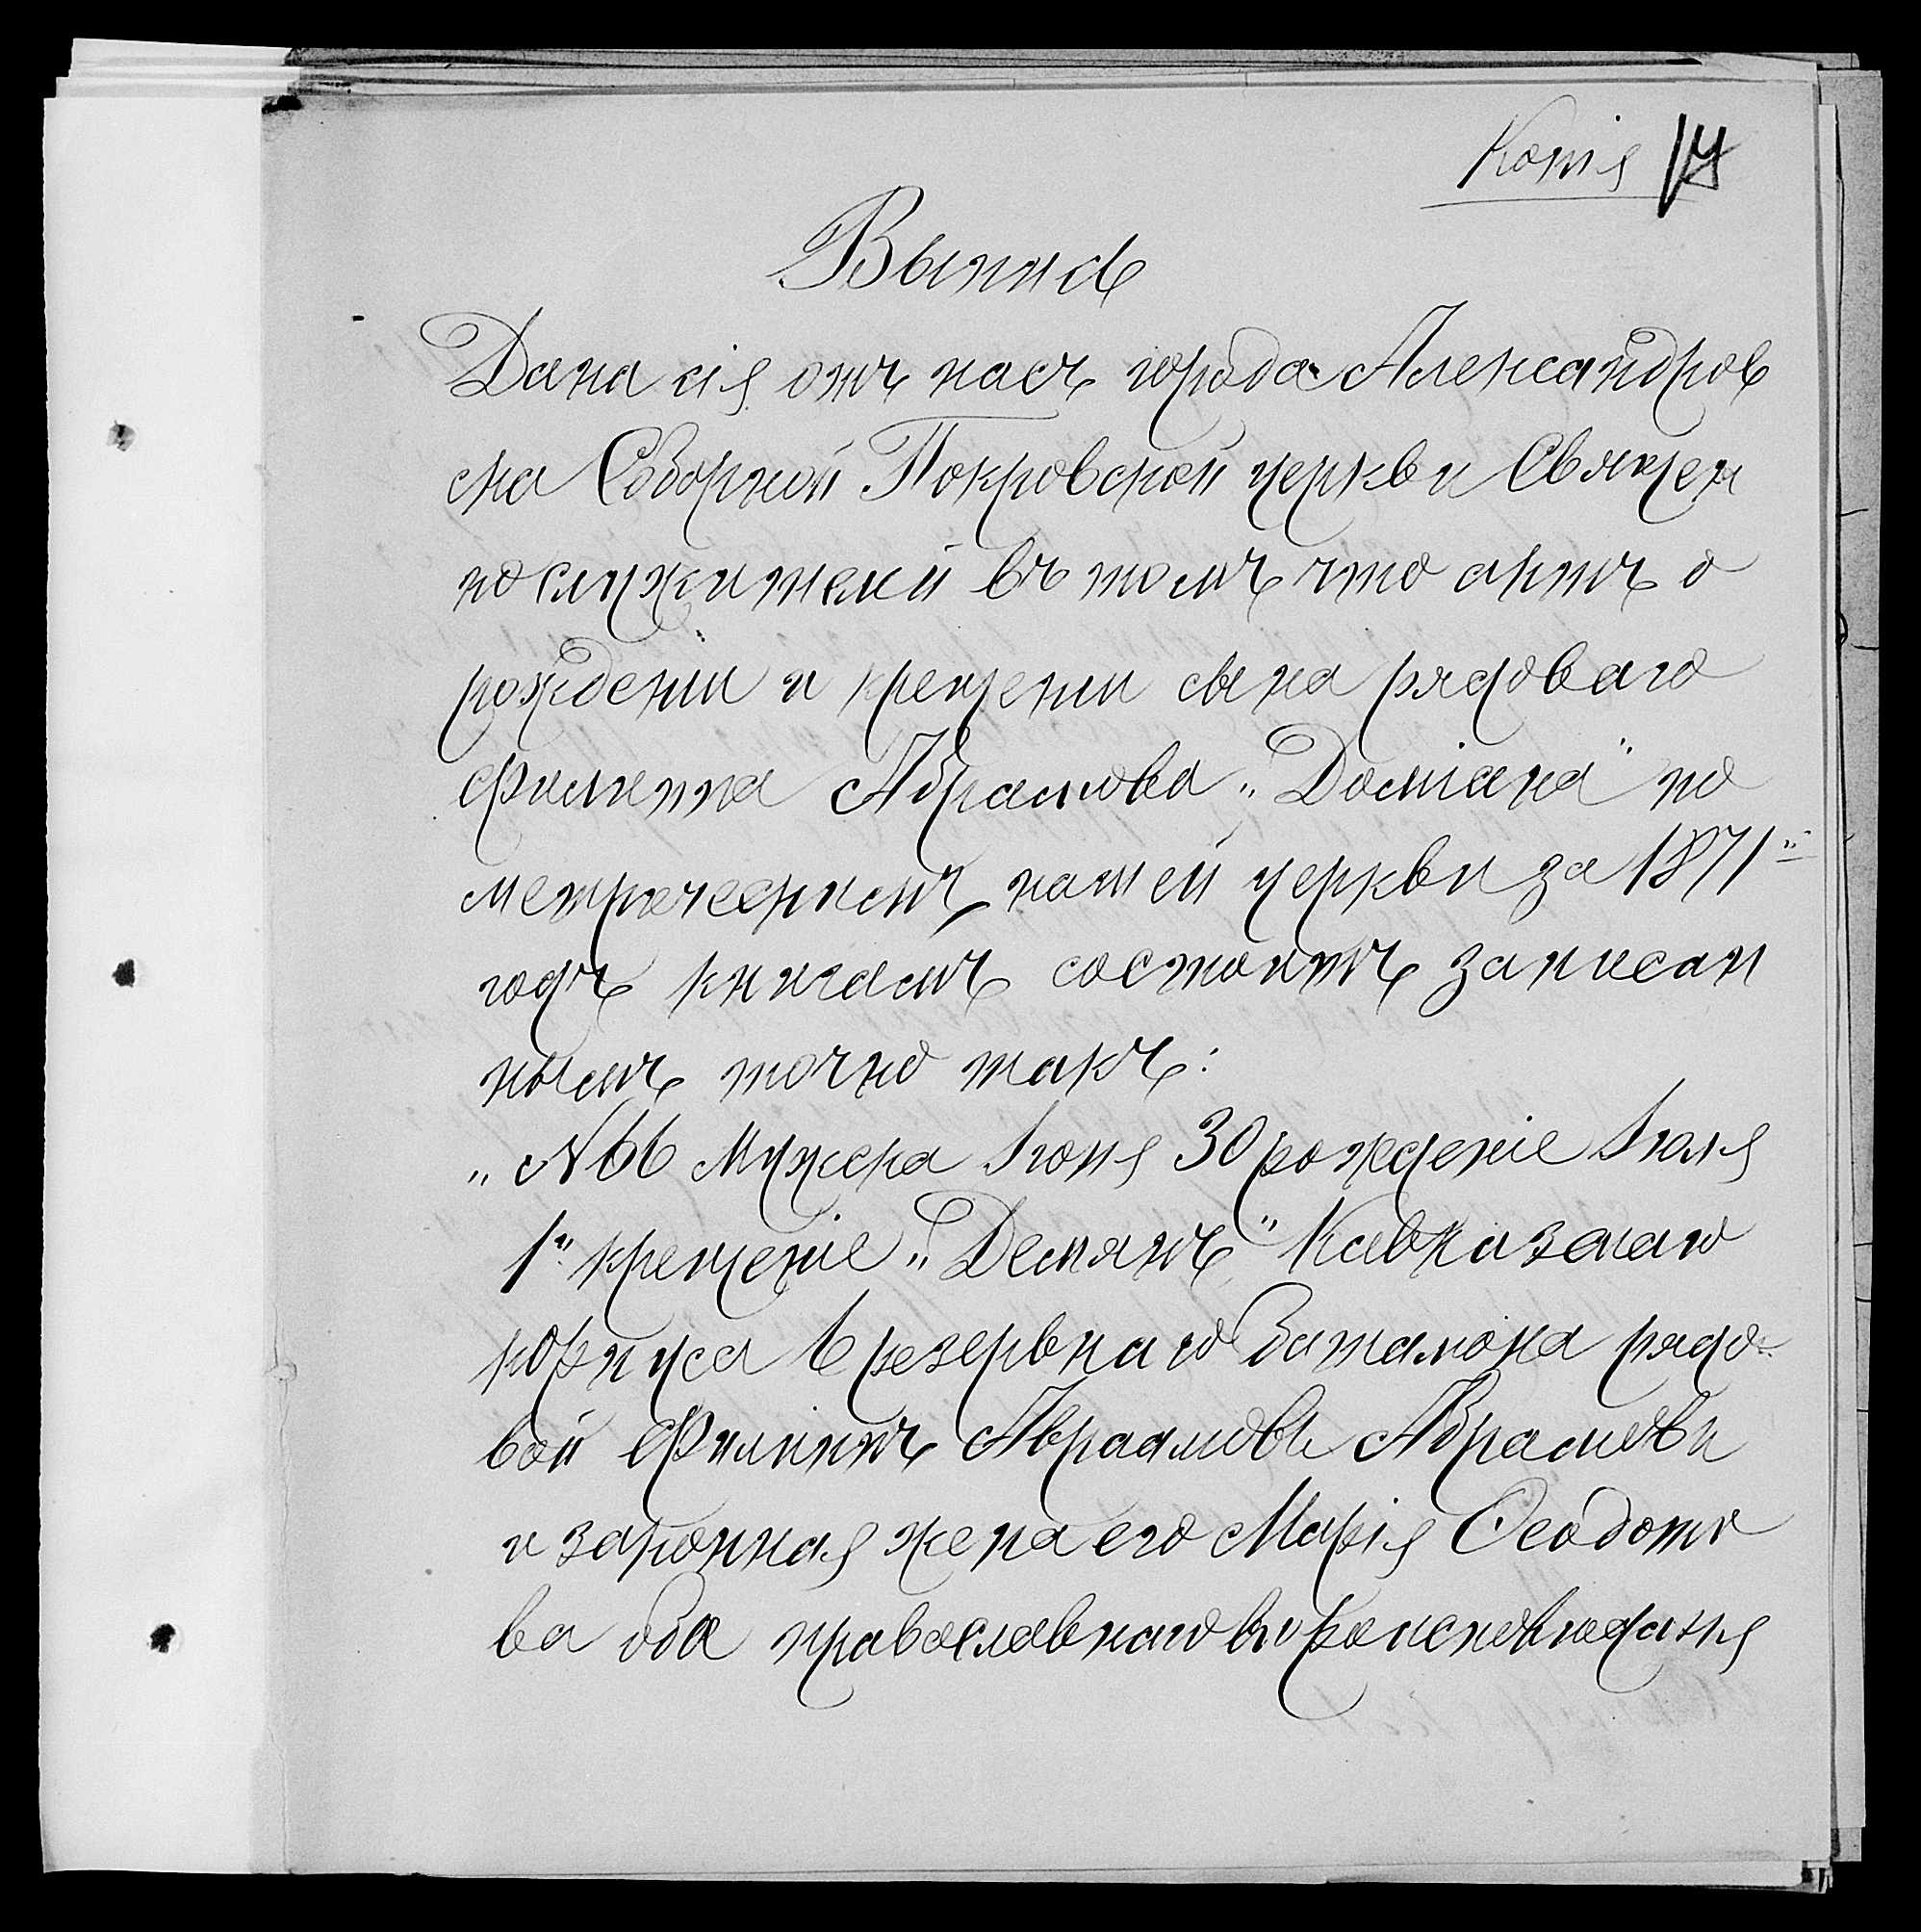 Копія 17
Выпись
Дана сія отъ насъ города Александров
ска Соборной Покровской церкви Священ
нослужителей въ томъ что актъ о
рожденіи и крещеніи сына рядоваго
Филиппа Абрамова „Доміана" по
метрическимъ нашей церкви за 1871й
годъ книгамъ состоитъ записан
нымъ точно такъ:
„№66 Мужска Іюня 30 рожденіе Іюля
1го крещеніе „Демянъ" Кавказскаго
корпуса 6 резервнаго баталіона рядо-
вой Филиппъ Авраамовъ Абрамовъ
и законная жена его Марія Ѳеодото
ва оба православнаго вѣроисповѣданія